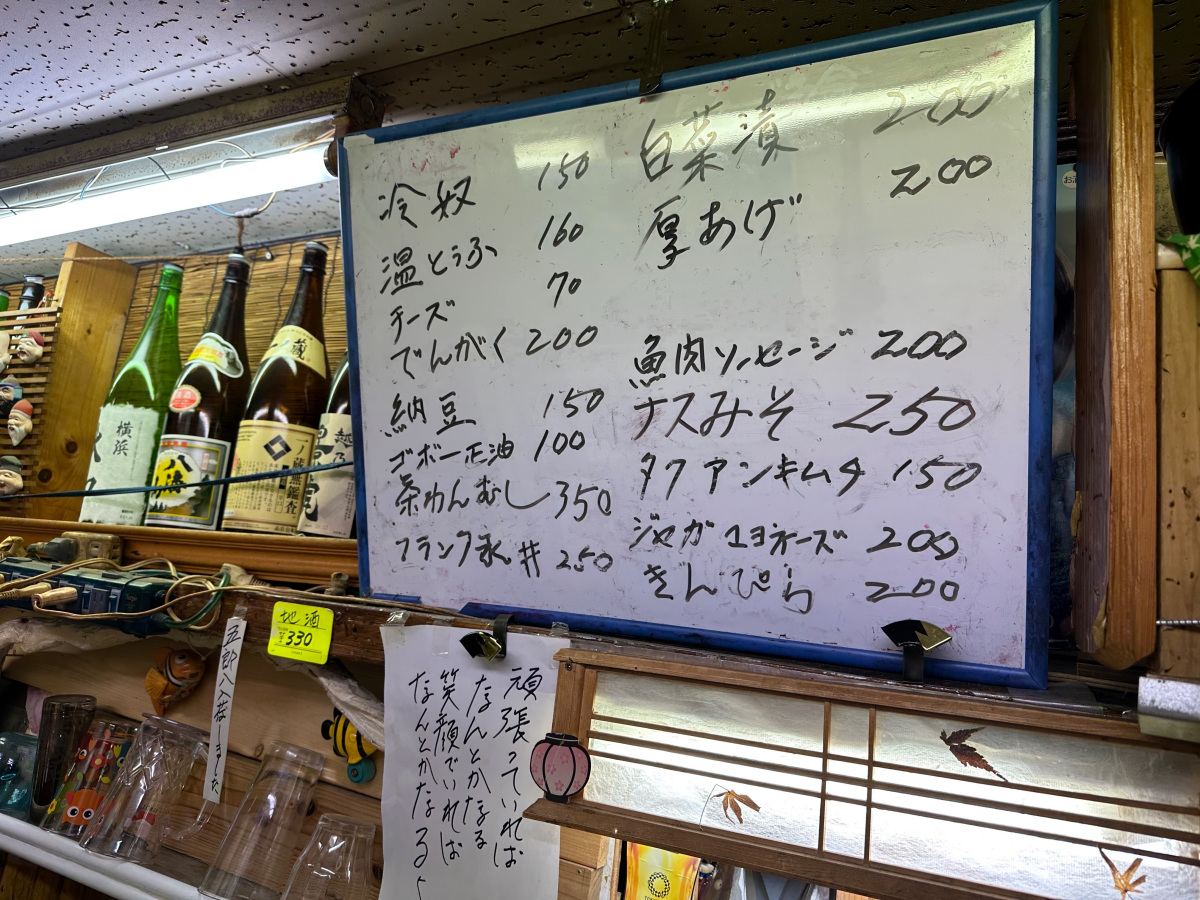 冷奴 150
温とうふ 160
チーズ 70
でんがく 200
納豆 150
ゴボー正油 100
茶わんむし 350
フランク 250
白菜漬 200
厚あげ 200
魚肉ソーセージ 200
ナスみそ 250
タクアンキムチ 150
ジャガマヨネーズ 200
きんぴら 200
横浜
八海
蔵
一ノ蔵無鑑査
越乃
地酒
330
五郎八入荷しました
頑張っていれば
なんとかなる
笑顔でいれば
なんとかなるさ